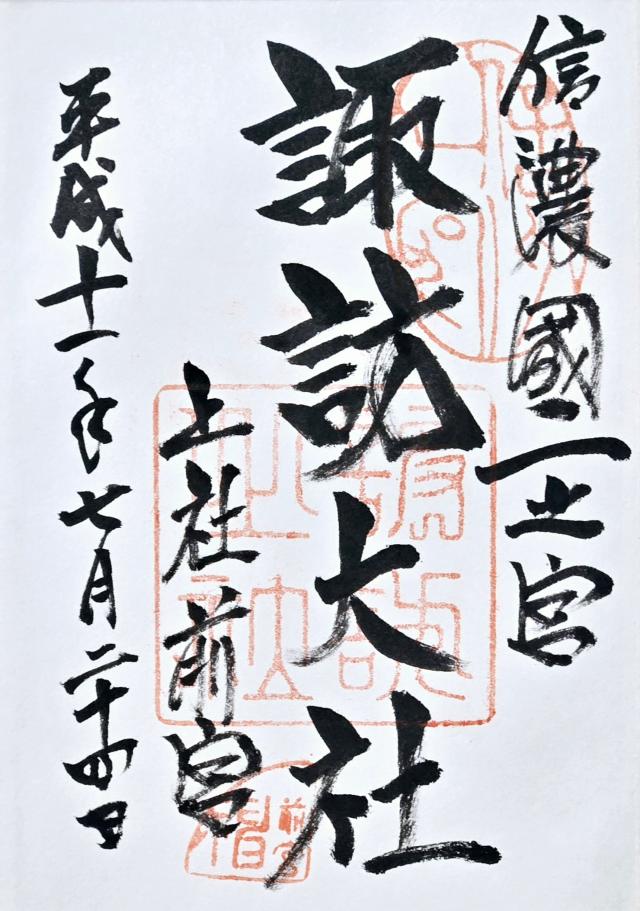 信濃國一之宮
諏訪大社
上社前宮
平成十一年七月二十四日